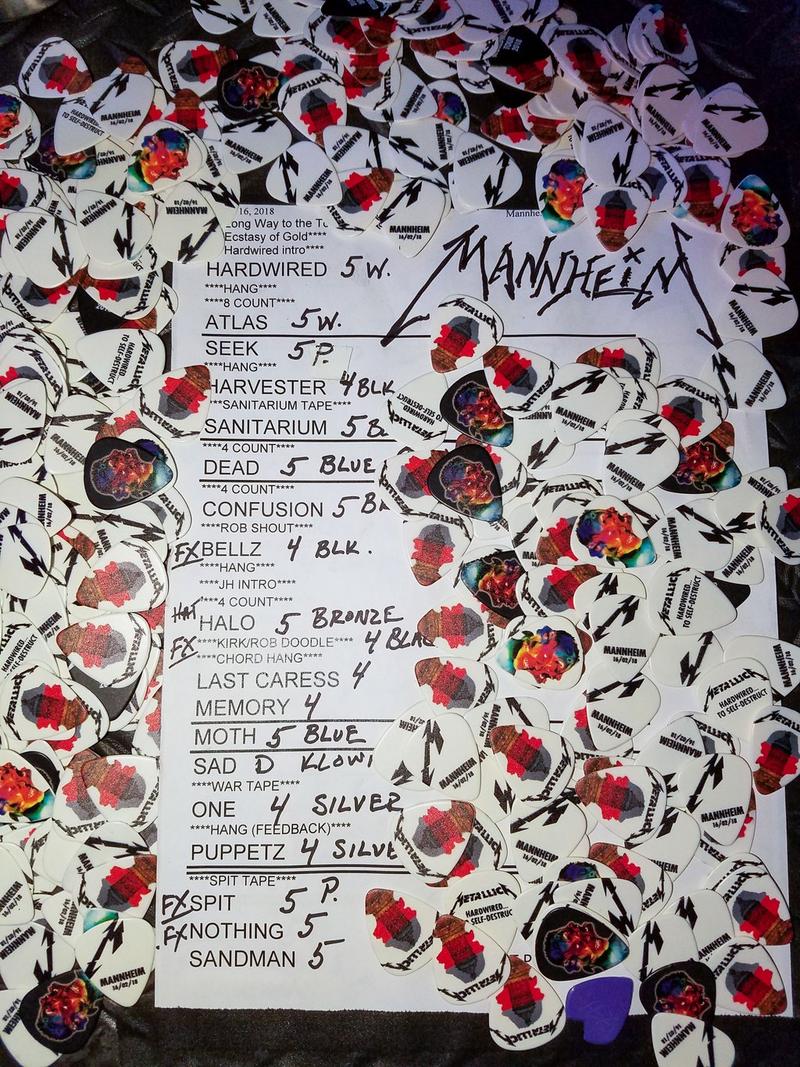 16, 2018
Mannhe
Long Way to the To
Ecstasy of Gold****
Hardwired intro****
MANNHEiM
HARDWIRED 5 W.
****HANG****
****8 COUNT****
ATLAS 5 W.
SEEK 5 P.
****HANG****
HARVESTER 4 BLK
****SANITARIUM TAPE****
SANITARIUM 5 BL
****4 COUNT****
DEAD 5 BLUE
****4 COUNT****
CONFUSION 5 BR
****ROB SHOUT****
FX BELLZ 4 BLK.
****HANG****
****JH INTRO****
****4 COUNT****
HALO 5 BRONZE
FX ****KIRK/ROB DOODLE**** 4 BLAC
****CHORD HANG****
LAST CARESS 4
MEMORY 4
MOTH 5 BLUE
SAD D KLOW
****WAR TAPE****
ONE 4 SILVER
****HANG (FEEDBACK)****
PUPPETZ 4 SILVE
****SPIT TAPE****
FX SPIT 5 P.
FX NOTHING 5
SANDMAN 5
METALLICA
HARDWIRED...
TO SELF-DESTRUCT
MANNHEIM
16/02/18